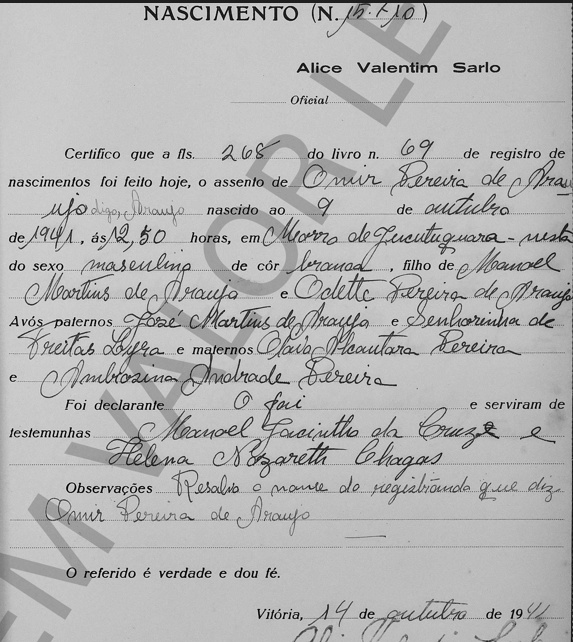 NASCIMENTO (N. 15.710)
Alice Valentim Sarlo
Oficial
Certifico que a fls. 268 do livro n. 69 de registro de
nascimentos foi feito hoje, o assento de Omir Pereira de Arau
ujo digo, Araujo nascido ao 9 de outubro
de 1941, ás 12,50 horas, em Morro de Jucutuguara - nesta
do sexo masculino de côr branca, filho de Manoel
Martins de Araujo e Odette Pereira de Araujo
Avós paternos José Martins de Araujo e Senhorinha de
Freitas Lyra e maternos Olavo Alcantara Pereira
e Ambrosina Andrade Pereira
Foi declarante O pai e serviram de
testemunhas Manoel Jacintho da Cruz e
Helena Nazareth Chagas
Observações Resalvo o nome do registrando que diz
Omir Pereira de Araujo
O referido é verdade e dou fé.
Vitória, 14 de outubro de 1941
EM VALOR LE